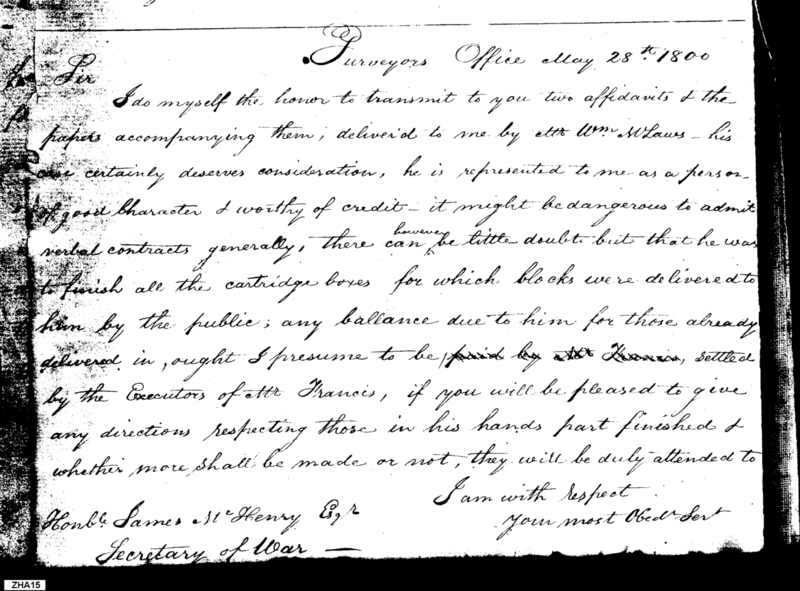 Surveyors Office May 28th. 1800
Sir
I do myself the honor to transmit to you two affidavits & the
papers accompanying them; deliver'd to me by Mr Wm. McLaws – his
case certainly deserves consideration, he is represented to me as a person
of good Character & worthy of credit – it might be dangerous to admit
verbal contracts generally, there can however be little doubt but that he was
to finish all the cartridge boxes for which blocks were delivered to
him by the public; any ballance due to him for those already
delivered in, ought I presume to be, paid by Mr Francis, settled
by the Executors of Mr Francis, if you will be pleased to give
any directions respecting those in his hands part finished &
whether more shall be made or not, they will be duly attended to
I am with respect
Your most Obedt Sert
Honble. James McHenry Esqr
Secretary of War —
ZHA15